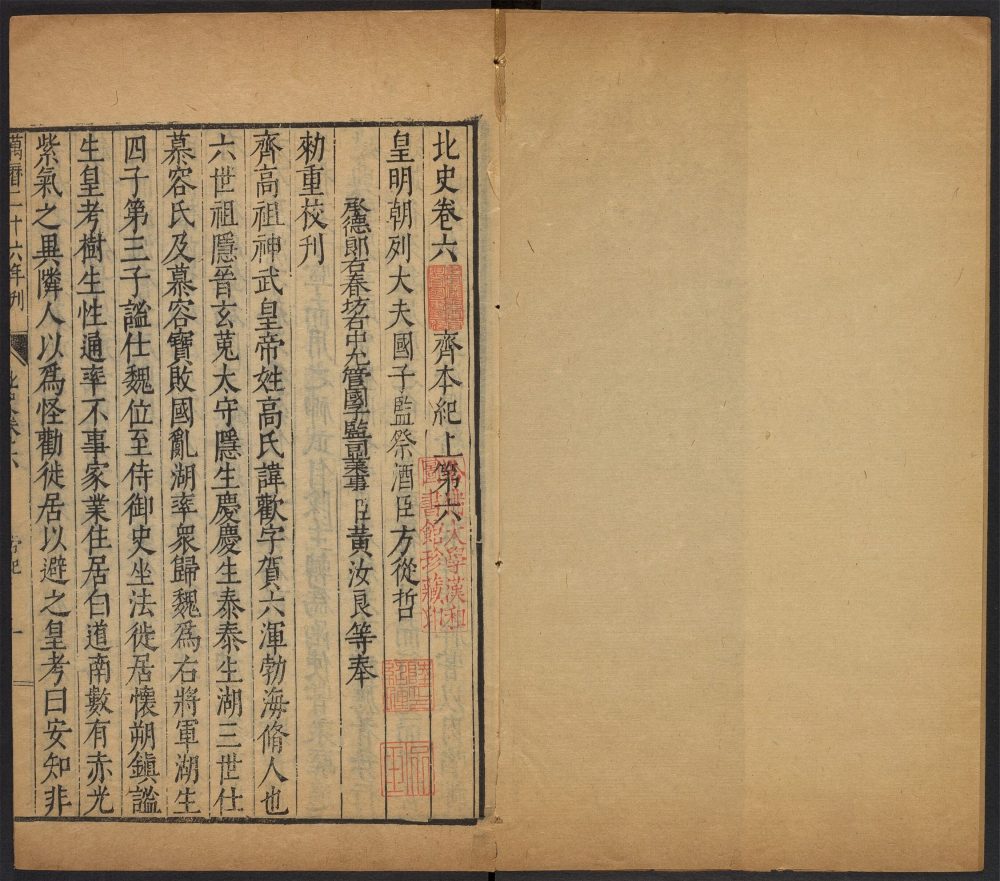 北史卷六 齊本紀上第六
皇明朝列大夫國子監祭酒臣方從哲
承德郎右春坊右中允管國子監司業事臣黃汝良等奉
勑重校刊
齊高祖神武皇帝姓高氏諱歡字賀六渾勃海脩人也
六世祖隱晉玄菟太守隱生慶慶生泰泰生湖三世仕
慕容氏及慕容寶敗國亂湖率衆歸魏爲右將軍湖生
四子第三子謐仕魏位至侍御史坐法徙居懷朔鎮謐
生皇考樹生性通率不事家業住居白道南數有赤光
紫氣之異隣人以爲怪勸徙居以避之皇考曰安知非
萬曆二十六年刊
北史卷六
齊紀
一
哈佛大學漢和
圖書館珍藏印